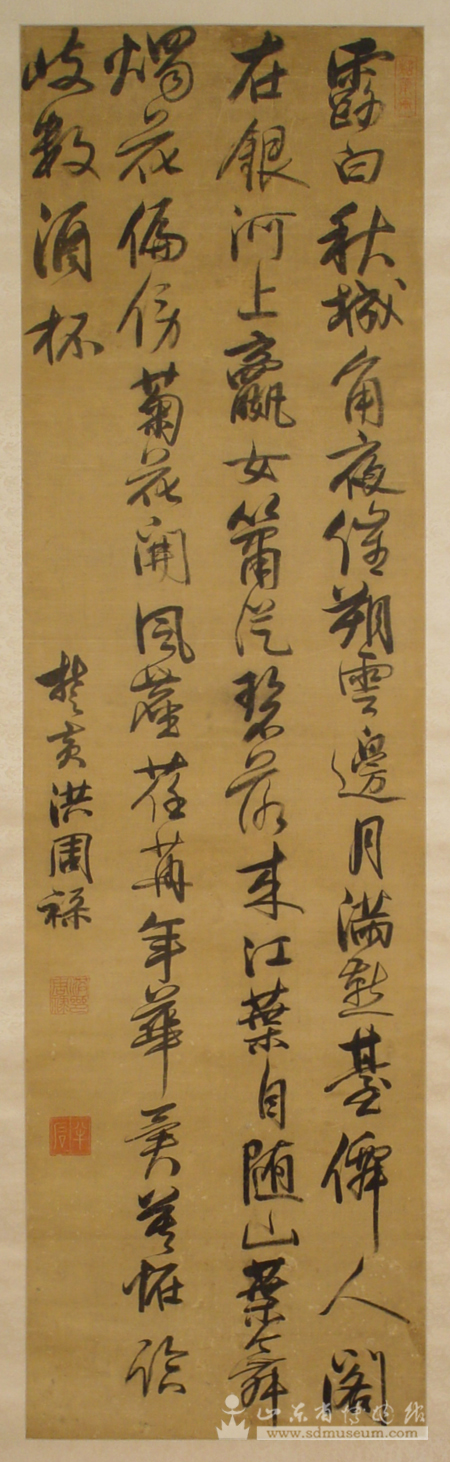 露白秋城角夜催朔雲邊月滿燕臺僊人閣
在銀河上嬴女簫從碧落来江葉自随山葉舞
燭花偏傍菊花開風塵荏苒年華異莫恠臨
岐數酒杯
楚黄洪周祿
山东省博物馆
www.sdmuseum.com